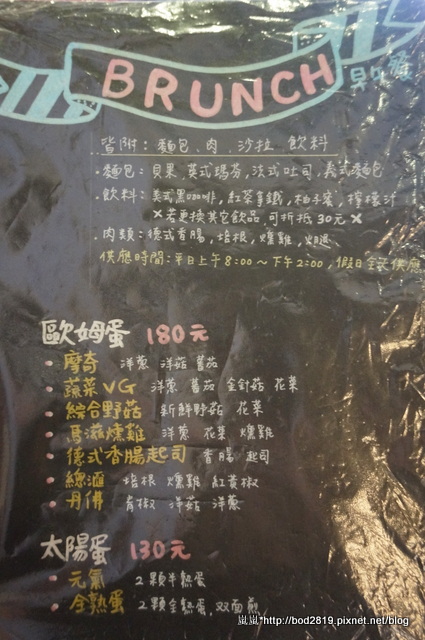 BRUNCH 早午餐
皆附：麵包、肉、沙拉、飲料
·麵包：貝果，英式瑪芬，法式吐司，義式麵包
·飲料：美式黑咖啡，紅茶拿鐵，柚子蜜，檸檬汁
×若更換其它飲品，可折抵30元×
·肉類：德式香腸，培根，燻雞，火腿
供應時間：平日上午8:00～下午2:00，假日全天供應
歐姆蛋 180元
·摩奇 洋蔥 洋菇 蕃茄
·蔬菜VG 洋蔥 蕃茄 金針菇 花菜
·綜合野菇 新鮮野菇 花菜
·馬滋燻雞 洋蔥 花菜 燻雞
·德式香腸起司 香腸 起司
·總滙 培根 燻雞 紅黃椒
·丹佛 青椒 洋菇 洋蔥
太陽蛋 130元
·元氣 2顆半熟蛋
·全熟蛋 2顆全熟蛋，双面煎
嵐嵐*http://bod2819.pixnet.net/blog